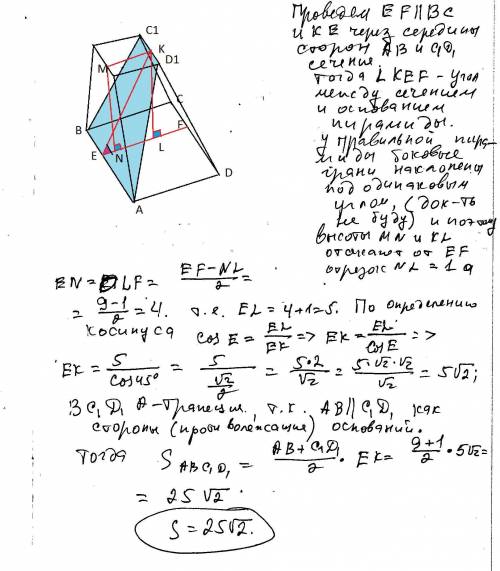 Проведем EF∥BC
и KE через середины
сторон AB и C₁D₁
сечение.
Тогда ∠KEF – угол
между сечением
и основанием
пирамиды.
У правильной пира-
миды боковые
грани наклонены
под одинаковым
углом, (док-ть
не буду) и поэтому
высоты MN и KL
отсекают от EF
отрезок NL = 1 а
C1
K
M
D1
B
C
E
N
L
F
D
A
EN = LF = (EF-NL)/2 =
= (9-1)/2 = 4. т.е. EL = 4+1=5. По определению
косинуса cos E = EL/EK => EK = EL/cos E =>
EK = 5/cos45° = 5/(√2/2) = 5·2/√2 = 5·√2·√2/√2 = 5√2;
BC₁D₁A – трапеция, т.к. AB∥C₁D₁ как
стороны оснований.
Тогда S ABC₁D₁ = (AB+C₁D₁)/2 · EK = (9+1)/2 · 5√2 =
= 25√2.
S = 25√2.